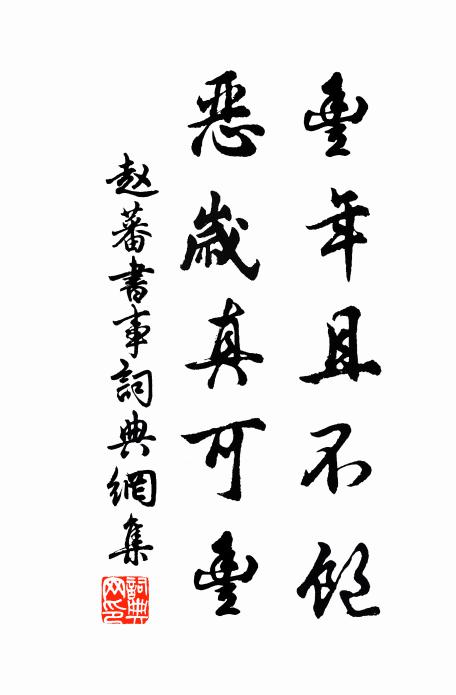 豐年且不飽
惡歲真可豐
赵蕃書事詞典網集
詞典网印